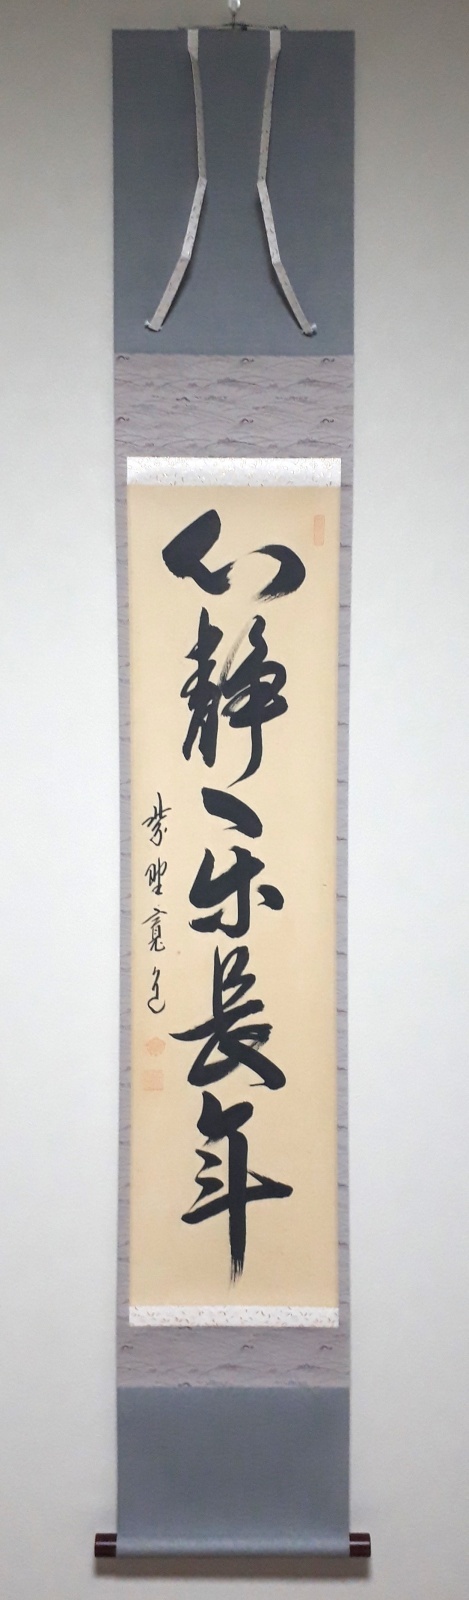 心静楽長年
紫野寛道